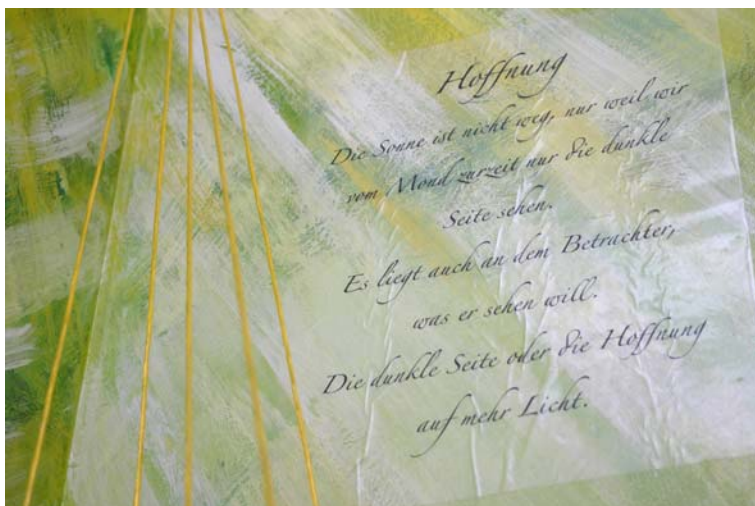 Hoffnung
Die Sonne ist nicht weg, nur weil wir
vom Mond zurzeit nur die dunkle
Seite sehen.
Es liegt auch an dem Betrachter,
was er sehen will.
Die dunkle Seite oder die Hoffnung
auf mehr Licht.